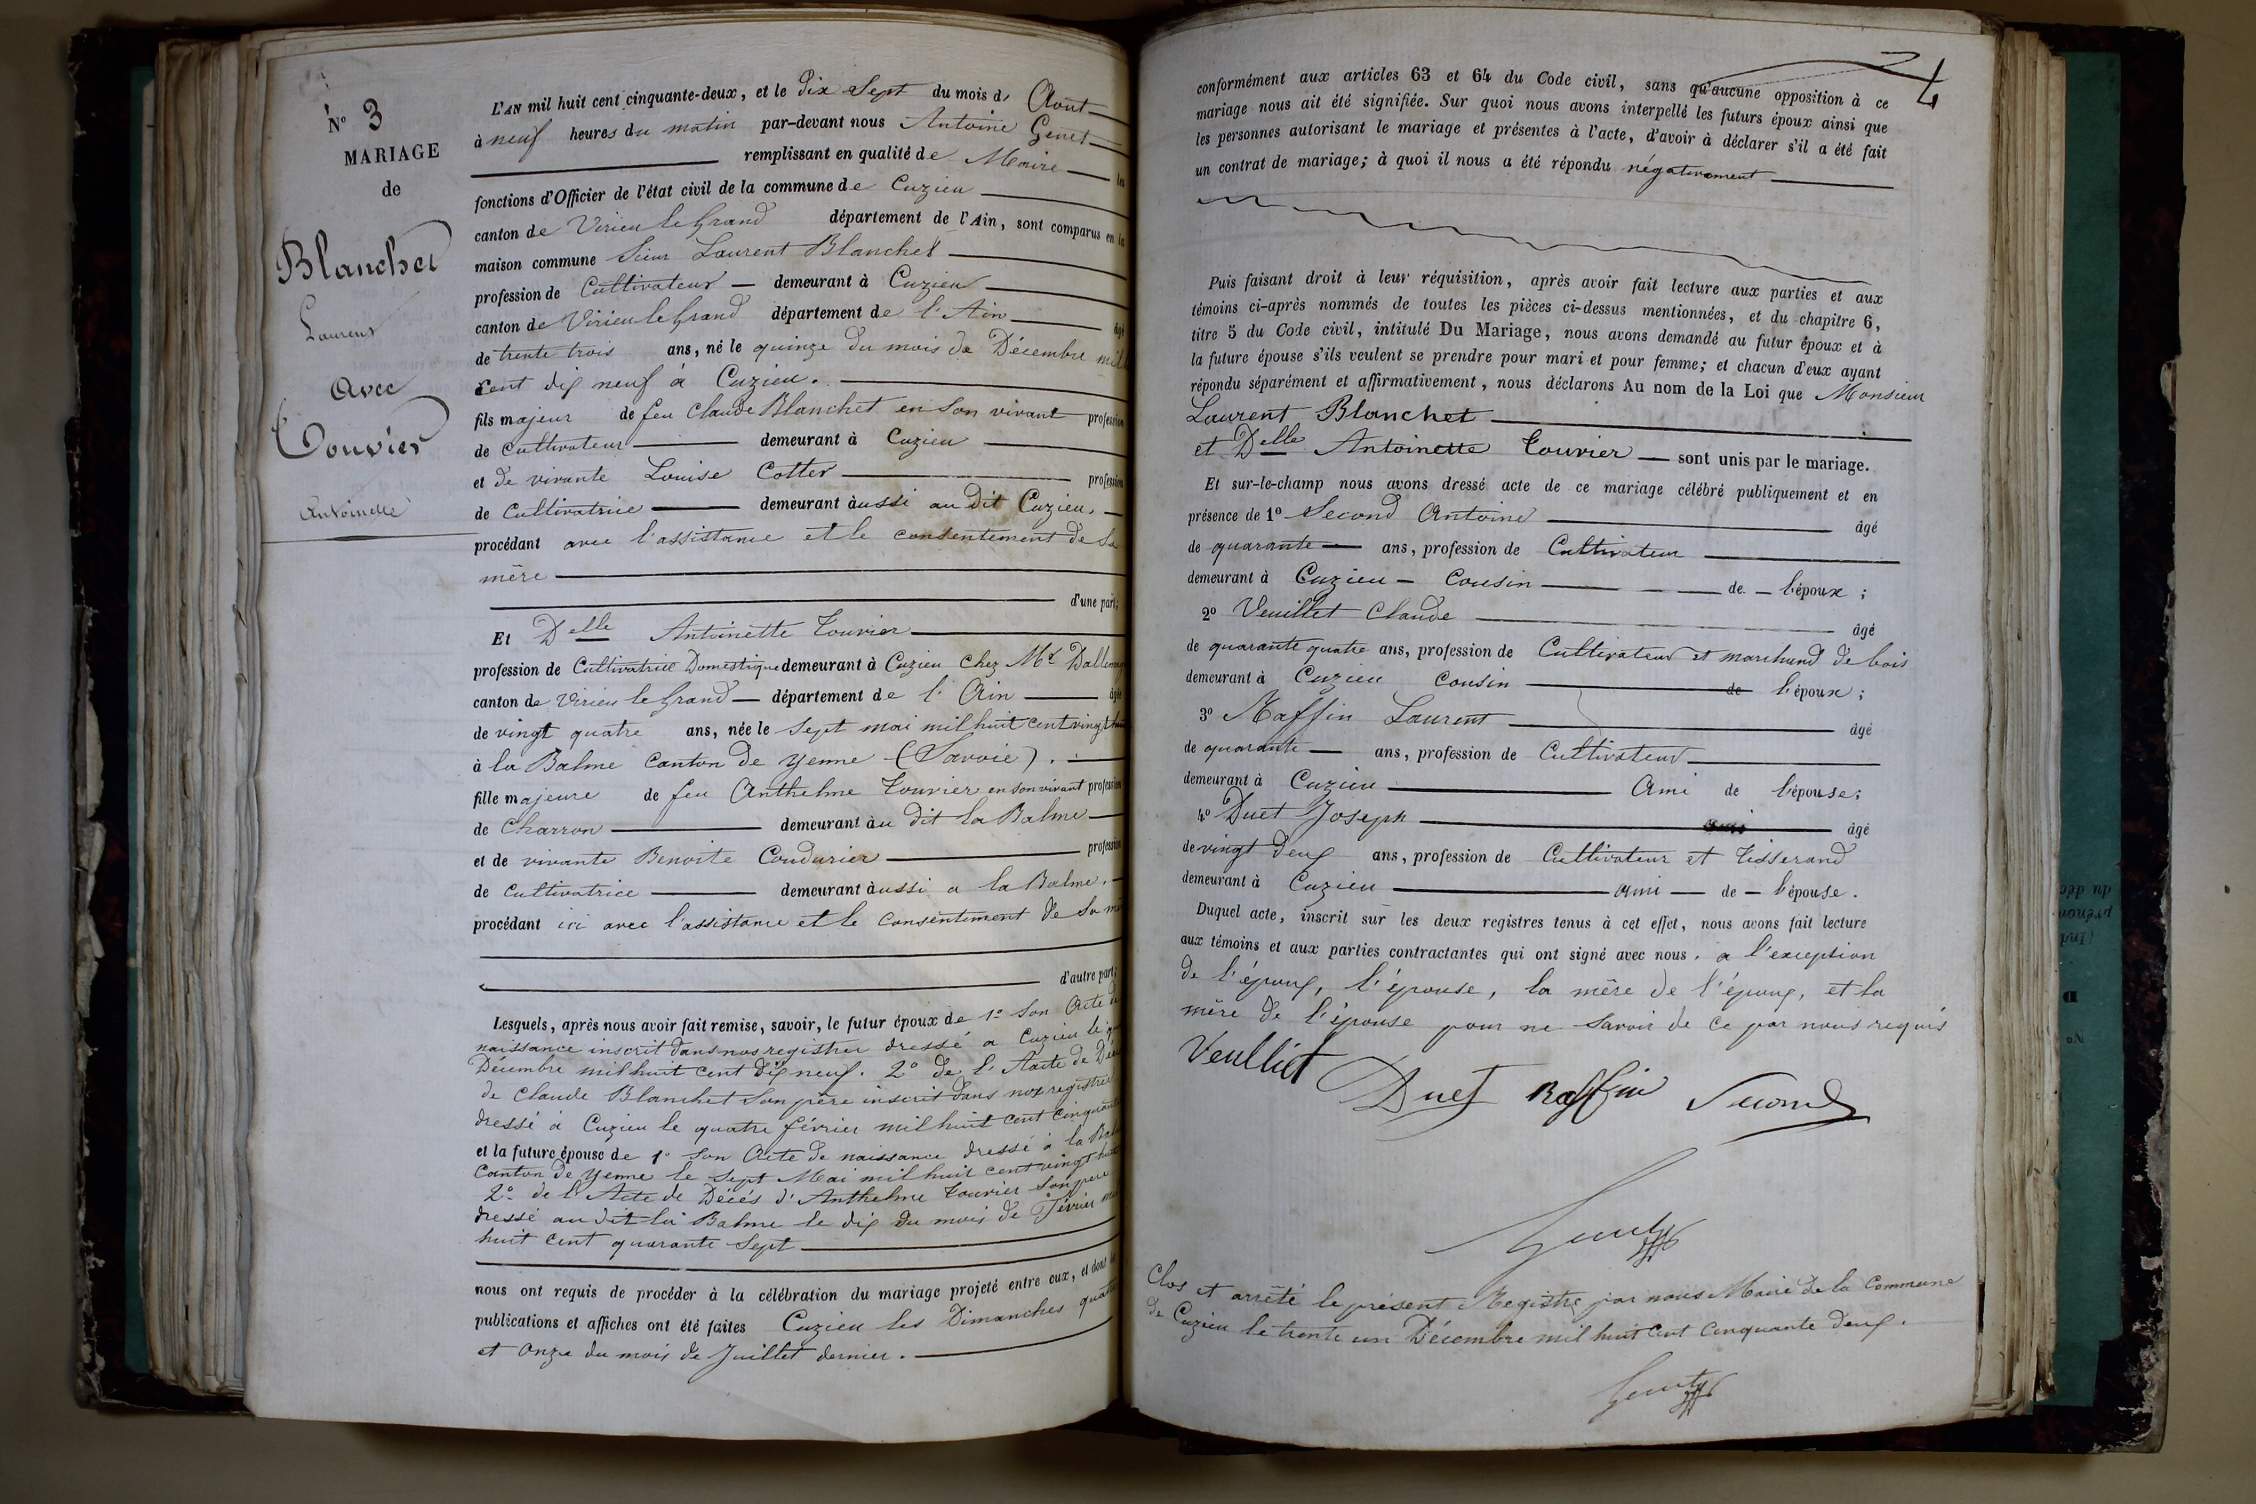 N.º 3
MARIAGE
de
Blanchet
Laurent
Avec
Touvier
Antoinette
L'AN mil huit cent cinquante-deux, et le dix Sept du mois d' Aout
à neuf heures du matin par-devant nous Antoine Genet
remplissant en qualité de Maire les
fonctions d'Officier de l'état civil de la commune de Cuzieu
canton de Virieu le Grand département de l'Ain, sont comparus en la
maison commune Sieur Laurent Blanchet
profession de Cultivateur demeurant à Cuzieu
canton de Virieu le Grand département de l'Ain âgé
de trente trois ans, né le quinze du mois de Décembre mil
cent dix neuf à Cuzieu.
fils majeur de feu Claude Blanchet en son vivant profession
de Cultivateur demeurant à Cuzieu
et de vivante Louise Cotter profession
de Cultivatrice demeurant àussi au dit Cuzieu.
procédant avec l'assistance et le consentement de Sa
mère
d'une part;
Et Delle Antoinette Touvier
profession de Cultivatrice Domestique demeurant à Cuzieu chez Mr
canton de Virieu le Grand département de l'Ain âgée
de vingt quatre ans, née le Sept mai mil huit cent vingt huit
à la Balme Canton de Yenne (Savoie).
fille majeure de feu Anthelme Touvier en son vivant profession
de Charron demeurant àu dit la Balme
et de vivante Benoite Coudurier profession
de Cultivatrice demeurant àussi a la Balme.
procédant ici avec l'assistance et le consentement de Sa
d'autre part;
Lesquels, après nous avoir fait remise, savoir, le futur époux de 1º Son Acte de
naissance inscrit dans nos registres dressé a Cuzieu le
Décembre mil huit cent dix neuf. 2º de l'Aacte de
de Claude Blanchet Son père inscrit dans nos registres
dressé à Cuzieu le quatre février mil huit cent cinquante
et la future épouse de 1º Son Acte de naissance dressé à la
Canton de Yenne le Sept Mai mil huit cent vingt huit
2º de l'Acte de Décés d'Anthelme Touvier Son père
dressé au dit la Balme le dix du mois de Février mil
huit cent quarante Sept
nous ont requis de procéder à la célébration du mariage projeté entre eux, et dont les
publications et affiches ont été faites Cuzieu les Dimanches quatre
et Onze du mois de Juillet dernier.
4
conformément aux articles 63 et 64 du Code civil, sans qu'aucune opposition à ce
mariage nous ait été signifiée. Sur quoi nous avons interpellé les futurs époux ainsi que
les personnes autorisant le mariage et présentes à l'acte, d'avoir à déclarer s'il a été fait
un contrat de mariage; à quoi il nous a été répondu négativement
Puis faisant droit à leur réquisition, après avoir fait lecture aux parties et aux
témoins ci-après nommés de toutes les pièces ci-dessus mentionnées, et du chapitre 6,
titre 5 du Code civil, intitulé Du Mariage, nous avons demandé au futur époux et à
la future épouse s'ils veulent se prendre pour mari et pour femme; et chacun d'eux ayant
répondu séparément et affirmativement, nous déclarons Au nom de la Loi que Monsieur
Laurent Blanchet
et Delle Antoinette Touvier sont unis par le mariage.
Et sur-le-champ nous avons dressé acte de ce mariage célébré publiquement et en
présence de 1º Second Antoine âgé
de quarante ans, profession de Cultivateur
demeurant à Cuzieu Cousin de l'époux;
2º Veuillet Claude âgé
de quarante quatre ans, profession de Cultivateur et marchand de bois
demeurant à Cuzieu Cousin de l'époux;
3º Raffin Laurent âgé
de quarante ans, profession de Cultivateur
demeurant à Cuzieu Ami de l'épouse;
4º Duet Joseph âgé
de vingt deux ans, profession de Cultivateur et Tisserand
demeurant à Cuzieu ami de l'épouse.
Duquel acte, inscrit sur les deux registres tenus à cet effet, nous avons fait lecture
aux témoins et aux parties contractantes qui ont signé avec nous. a l'exception
de l'époux, l'épouse, la mère de l'époux, et la
mère de l'épouse pour ne Savoir de ce par nous requis
Veulliet Duet Raffin Second
Genet
Clos et arrêté le présent Registre par nous Maire de la Commune
de Cuzieu le trente un Décembre mil huit cent cinquante deux.
Genet